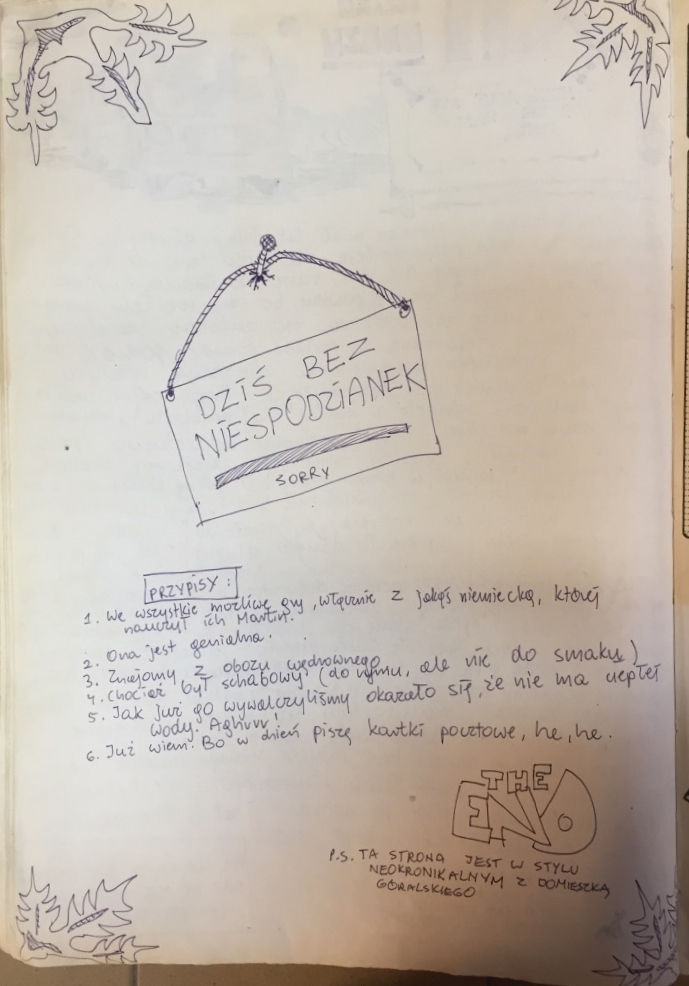 DZIŚ BEZ
NIESPODZIANEK
SORRY
PRZYPISY:
1. We wszystkie możliwe gry, włącznie z jakąś niemiecką, której
nauczył ich Martin.
2. Ona jest genialna.
3. Znajomy z obozu wędrownego
4. Chociaż był schabowy (do rymu, ale nie do smaku)
5. Jak już go wywalczyliśmy okazało się, że nie ma ciepłej
wody. Aghrrr!
6. Już wiem! Bo w dzień piszę kartki pocztowe, he, he.
THE
END
P.S. TA STRONA JEST W STYLU
NEOKRONIKALNYM Z DOMIESZKĄ
GÓRALSKIEGO